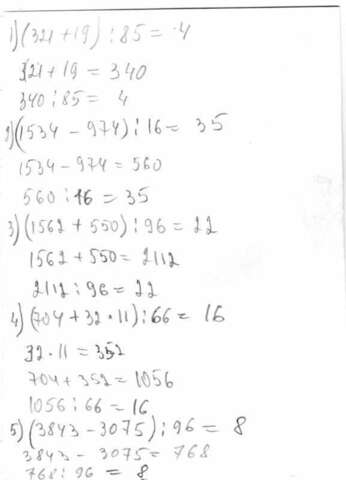 1) (321 + 19) : 85 = 4
321 + 19 = 340
340 : 85 = 4
2) (1534 - 974) : 16 = 35
1534 - 974 = 560
560 : 16 = 35
3) (1562 + 550) : 96 = 22
1562 + 550 = 2112
2112 : 96 = 22
4) (704 + 32 · 11) : 66 = 16
32 · 11 = 352
704 + 352 = 1056
1056 : 66 = 16
5) (3843 - 3075) : 96 = 8
3843 - 3075 = 768
768 : 96 = 8